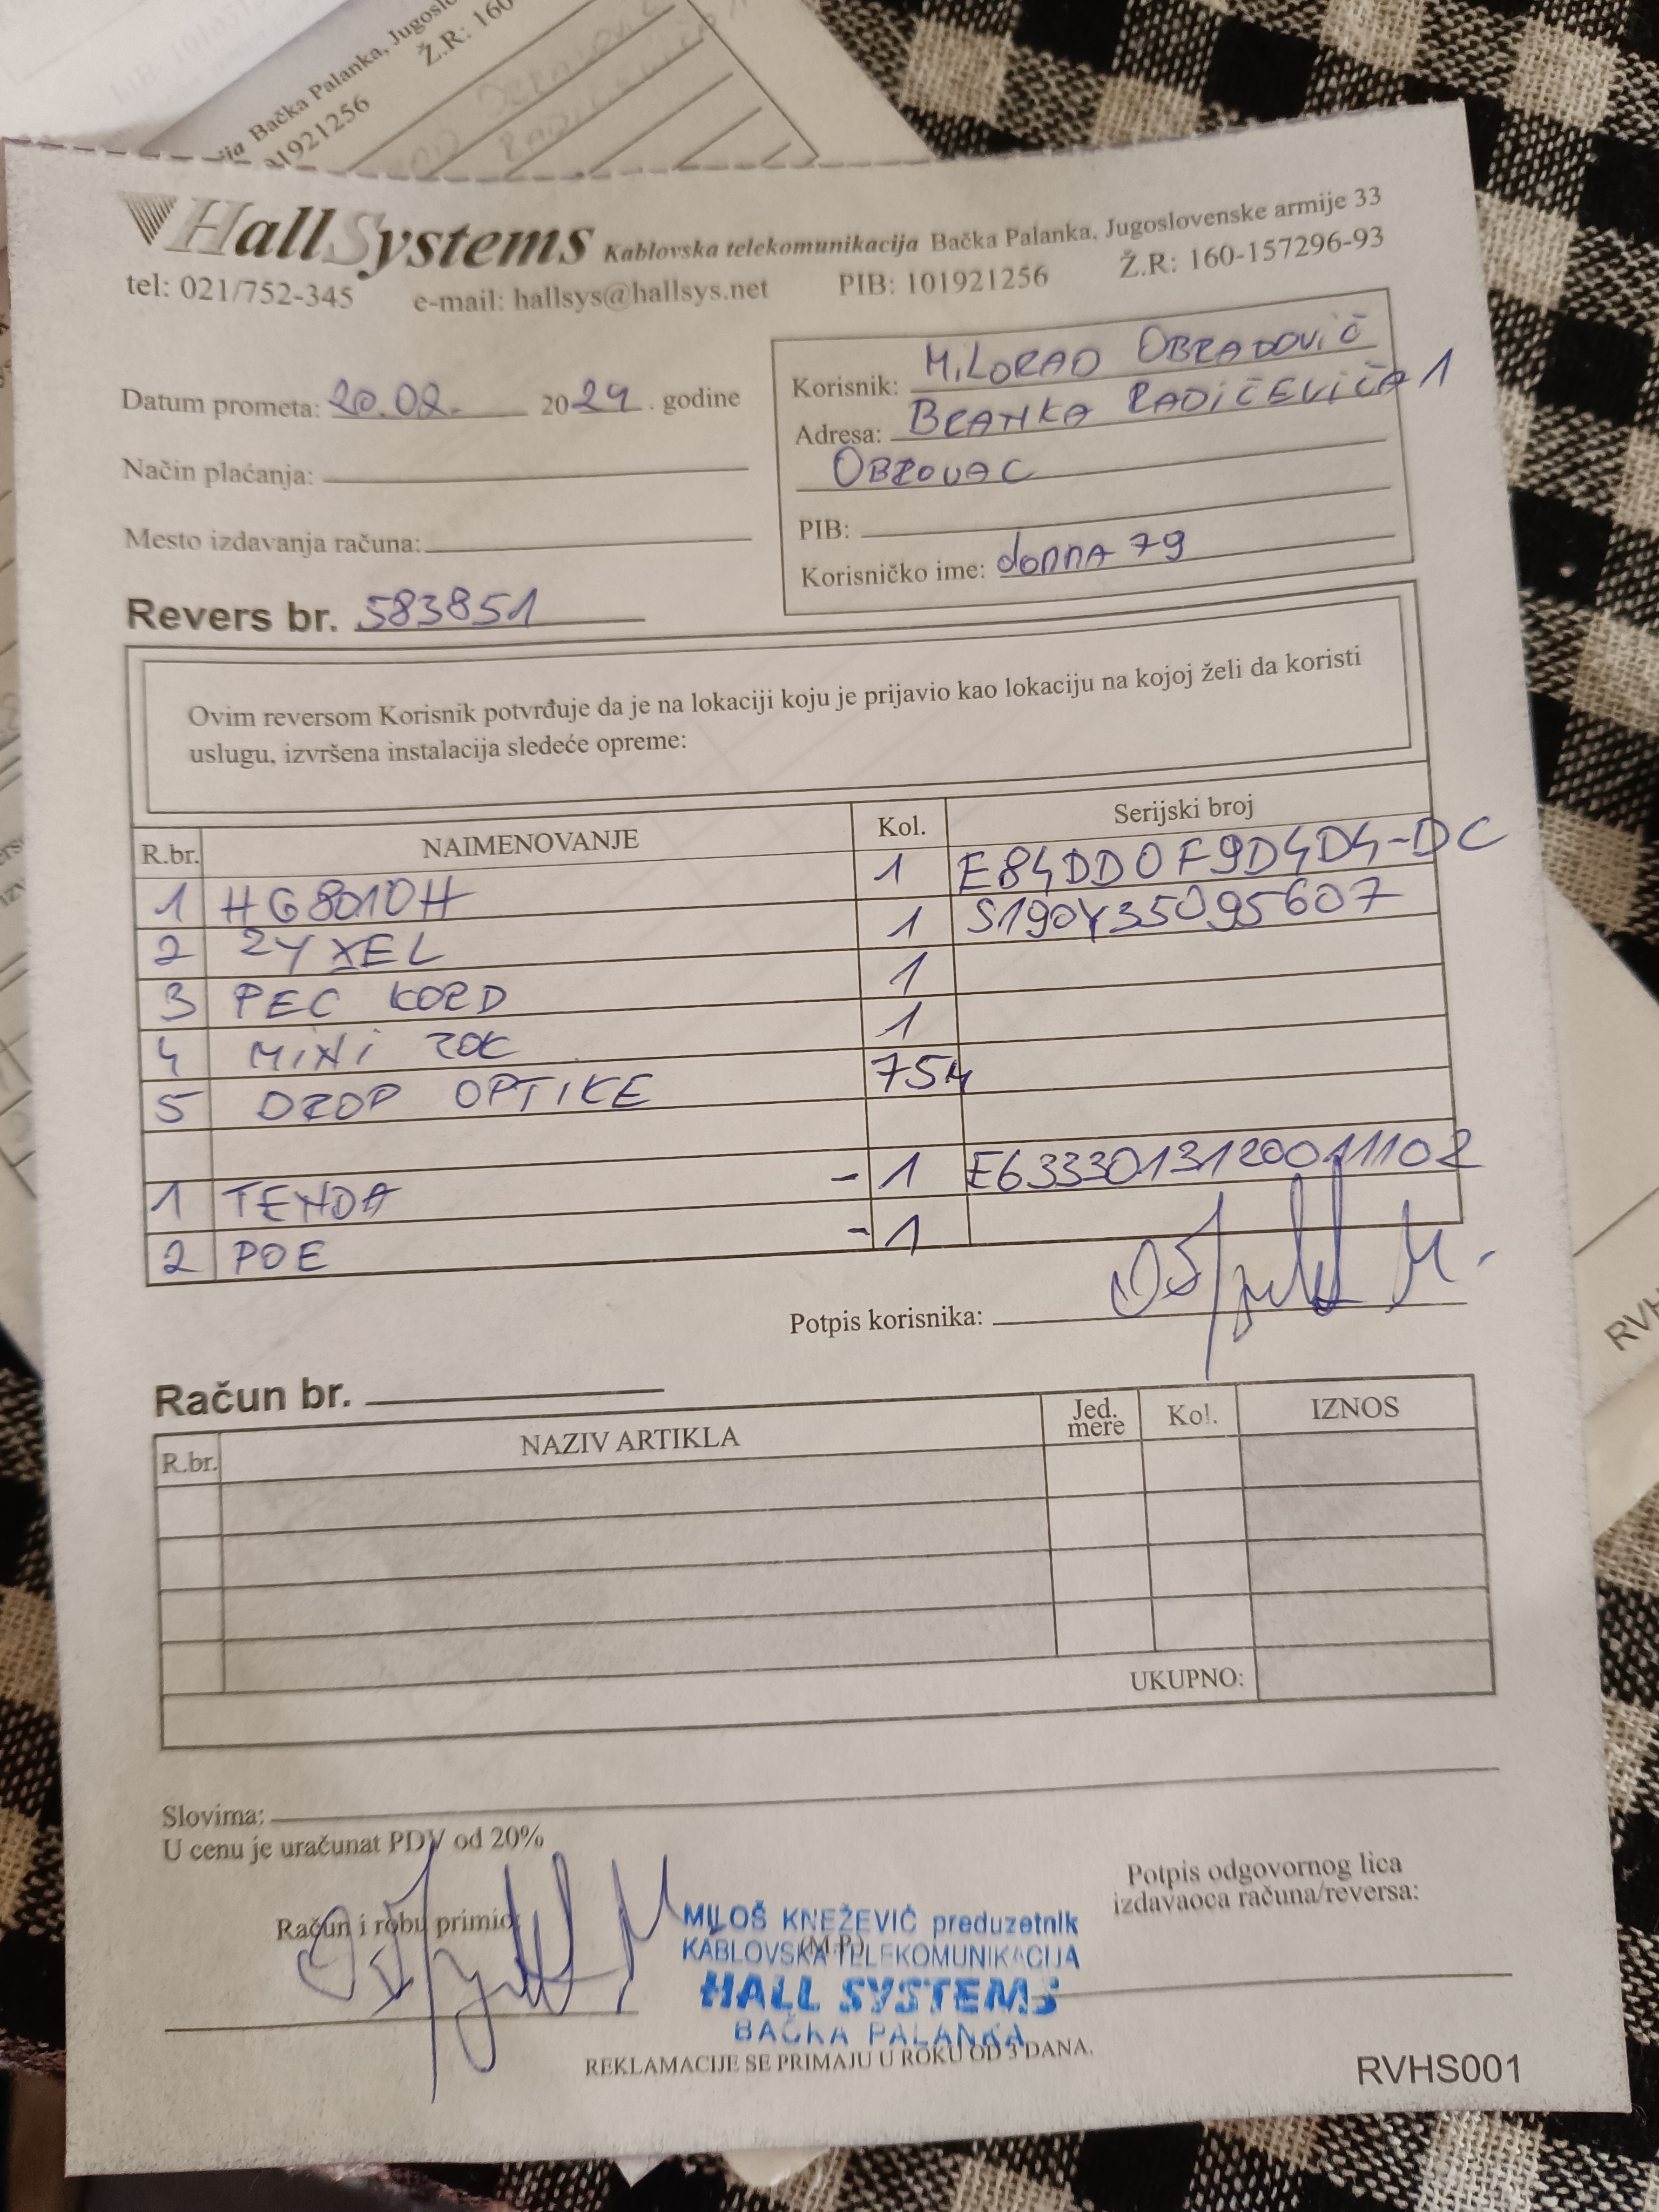 Bačka Palanka, Jugoslo
Ž.R: 160
01921256
HallSystems Kablovska telekomunikacija Bačka Palanka, Jugoslovenske armije 33
tel: 021/752-345 e-mail: hallsys@hallsys.net PIB: 101921256 Ž.R: 160-157296-93
Datum prometa: 20.02. 2024. godine
Način plaćanja:
Mesto izdavanja računa:
Korisnik: MiLORAD OBRADOViĆ
Adresa: BRANKA RADiČEViĆA 1
OBROVAC
PIB:
Korisničko ime: donna 79
Revers br. 583851
Ovim reversom Korisnik potvrđuje da je na lokaciji koju je prijavio kao lokaciju na kojoj želi da koristi
uslugu, izvršena instalacija sledeće opreme:
R.br. NAIMENOVANJE Kol. Serijski broj
1 HG8010H 1 E84DD0F9D4D4-DC
2 ZYXEL 1 S190Y35095607
3 PEC KORD 1
4 MiNi ROK 1
5 DROP OPTIKE 75M
1 TENDA -1 E6333013120011102
2 POE -1
Potpis korisnika:
Račun br.
R.br. NAZIV ARTIKLA Jed. mere Kol. IZNOS
UKUPNO:
Slovima:
U cenu je uračunat PDV od 20%
Račun i robu primio:
Potpis odgovornog lica
izdavaoca računa/reversa:
(M.P.)
MILOŠ KNEŽEVIĆ preduzetnik
KABLOVSKA TELEKOMUNIKACIJA
HALL SYSTEMS
BAČKA PALANKA
REKLAMACIJE SE PRIMAJU U ROKU OD 3 DANA.
RVHS001